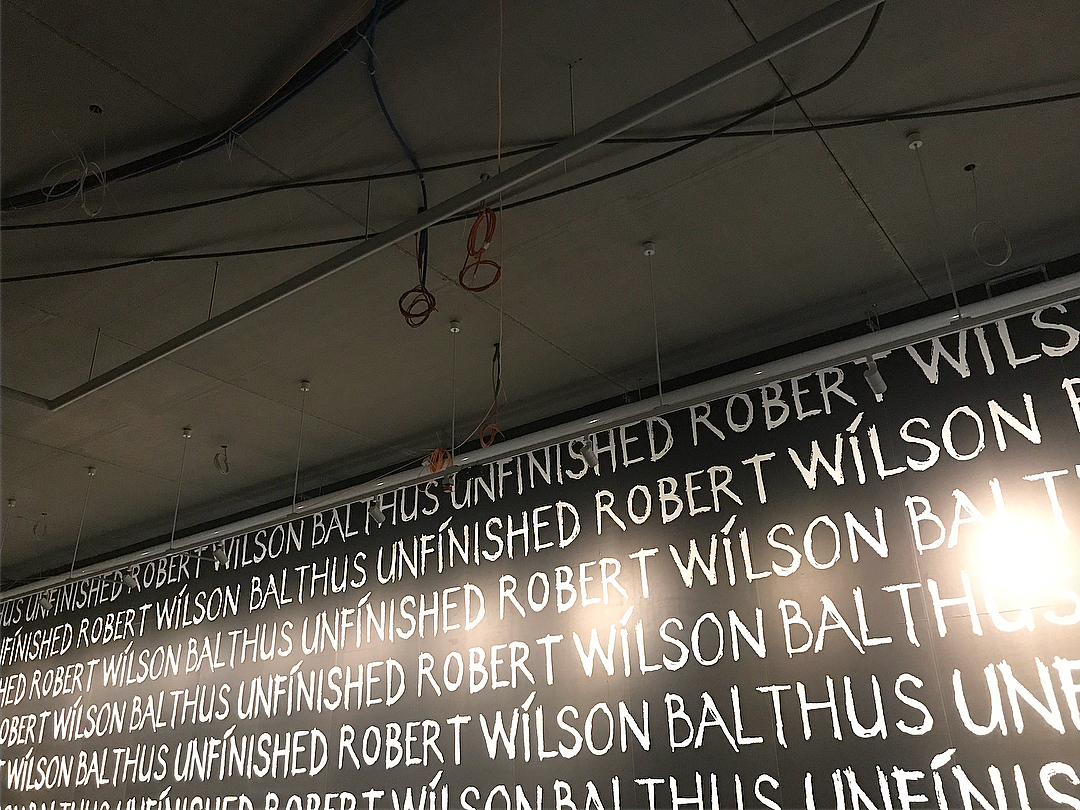 US UNFÍNISHED ROBERT WÍLSON BALTHUS UNFÍNISHED ROBERT WÍLS
NFÍNISHED ROBERT WÍLSON BALTHUS UNFÍNISHED ROBERT WÍLSON
HED ROBERT WÍLSON BALTHUS UNFÍNISHED ROBERT WÍLSON BALT
OBERT WÍLSON BALTHUS UNFÍNISHED ROBERT WÍLSON BALTHUS
T WÍLSON BALTHUS UNFÍNISHED ROBERT WÍLSON BALTHUS UNF
BALTHUS UNFÍNISHED ROBERT WÍLSON BALTHUS UNFÍNIS